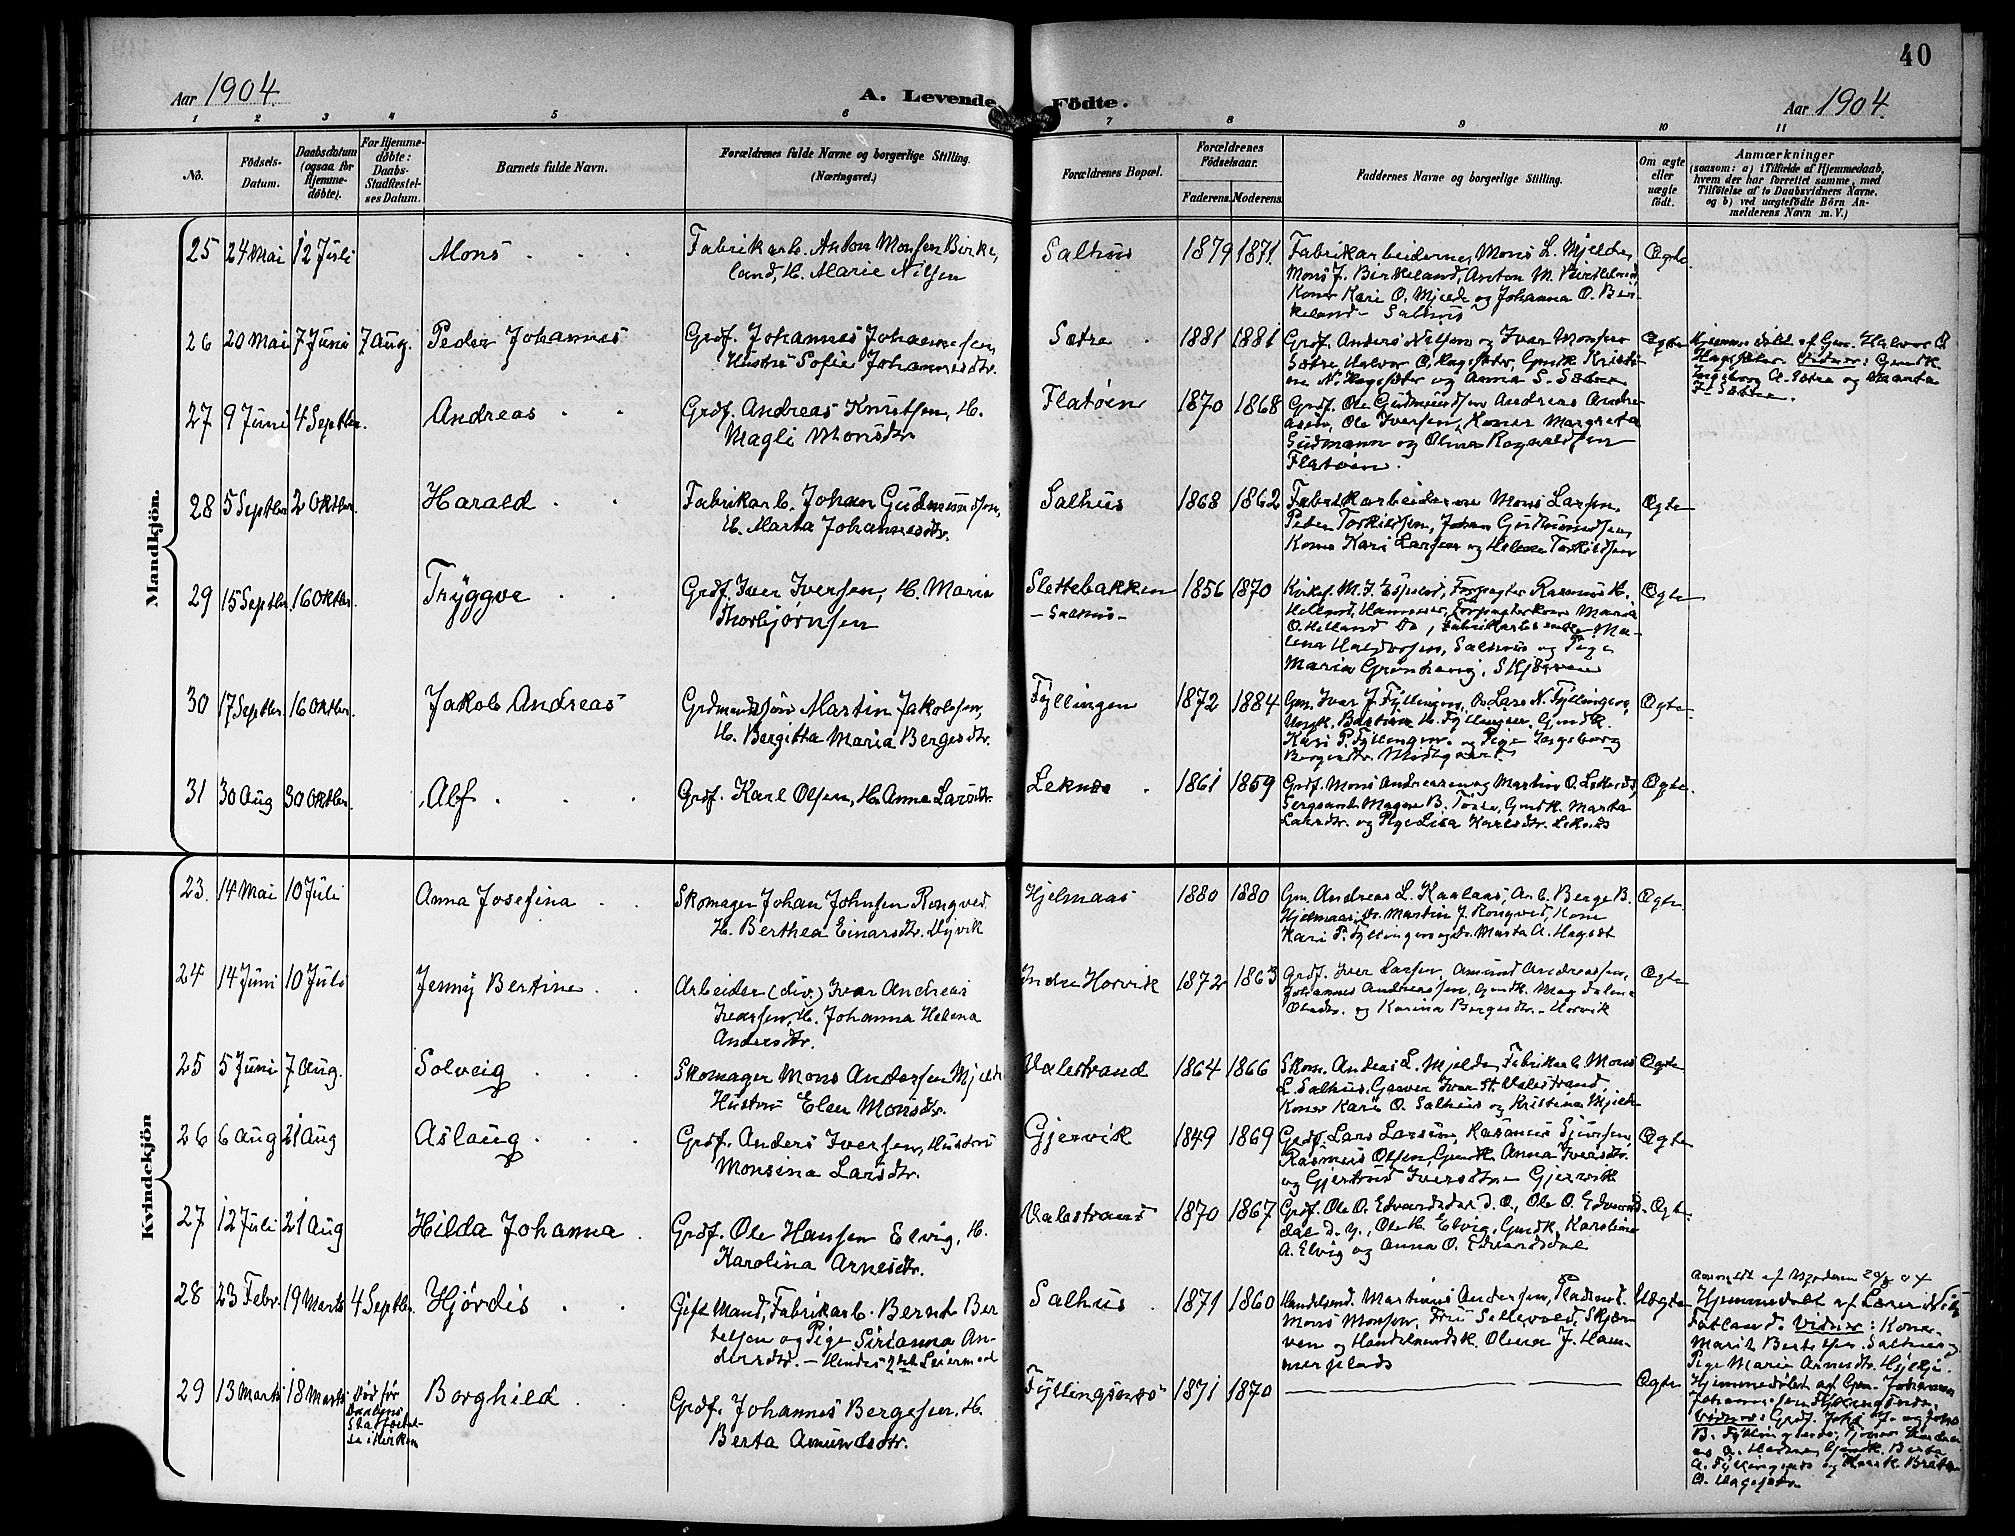 40
Aar 1904.
A. Levende Födte.
Aar 1904.
1 2 3 4 5 6 7 8 9 10 11
No.
Födsels-Datum.
Daabsdatum (ogsaa for Hjemme-döbte).
For Hjemme-döbte: Daabs-Stadfæstel-ses Datum.
Barnets fulde Navn.
Forældrenes fulde Navne og borgerlige Stilling.
(Næringsvei.)
Forældrenes Bopæl.
Forældrenes Födselsaar.
Faderens. Moderens.
Faddernes Navne og borgerlige Stilling.
Om ægte eller uægte födt.
Anmærkninger
(saasom: a) i Tilfælde af Hjemmedaab,
hvem der har forrettet samme, med
Tilföielse af to Daabsvidners Navne,
og b) ved uægtefödte Börn An-
melderens Navn m. V.)
Mandkjön.
25 24 Mai 12 Juli Mons Fabrikarb. Anton Monsen Birke-
land, H. Marie Nilsen
Salhus 1879 1871. Fabrikarbeiderne, Mons L. Mjelde,
Mons J. Birkeland, Anton M. Birkeland,
Koner Kari O. Mjelde og Johanna O. Bir-
keland - Salhus
Ægte.
26 20 Mai 7 Juni 7 Aug. Peder Johannes Grdf. Johannes Johannessen,
Hustru Sofie Johannesdtr.
Sætre 1881 1881 Grdf. Anders Nilsen og Ivar Monsen
Sætre, Halvor O. Hagesæter, Gmdk. Kristi-
ne N. Hagesæter og Anna S. Sætre
Ægte
Hjemmedøbt af Gm. Halvor O.
Hagesæter. Vidner: Gmdk.
Ingeborg A. Sætre og Marta
J. Sætre.
27 9 Juni 4 Septbr. Andreas Grdf. Andreas Knutsen, H.
Magli Monsdtr.
Flatøen 1870 1868 Grdf. Ole Gudmundsen Andreas Andre-
asen, Ole Iversen, Koner Margreta
Gudmann og Olina Ragnvaldsen
Flatøen.
28 5 Septbr 2 Oktbr. Harald Fabrikarb. Johan Gudmundsen,
H. Marta Johannesdtr.
Salhus 1868 1862 Fabrikarbeiderne Mons Larsen,
Peder Torkildsen, Johan Gudmundsen,
Koner Kari Larsen og Helene Torkildsen
Ægte
29 15 Septbr. 16 Oktbr. Trÿggve Grdf. Iver Iversen, H. Maria
Thorbjørnsen
Slettebakken
- Salhus -
1856 1870 Kirkes. M. J. Espeid, Forpagter Rasmus H.
Helland, Hammer, Forpagterkone Maria
O. Helland Do, Fabrikarbeiderske Ma-
lena Halvorsen, Salhus og Pige
Maria Grønhaug, Skjærven
Ægte
30 17 Septbr. 16 Oktbr. Jakob Andreas Grdmandssøn Martin Jakobsen,
H. Bergitta Maria Bergesdtr.
Fyllingen 1872 1884 Gm. Ivar J. Fyllingen, Do Lars N. Fyllingen,
Ungk. Bastian H. Fyllingen, Gmdk.
Kari P. Fyllingen. og Pige Ingeborg
Bergesdtr. Midtgaard.
Ægte.
31 30 Aug 30 Oktbr. Alf Grdf. Karl Olsen, H. Anna Larsdtr.
Leknæs 1861 1859 Grdf. Mons Andreassen og Martin O. Leknæs,
Sergeant Magne B. Tosse, Gmdk. Marta
Larsdtr. og Pige Lisa Karlsdtr. Leknæs
Ægte.
Kvindekjön
23. 14 Mai 10 Juli Anna Josefina Skomager Johan Johnsen Rongved.
H. Berthea Einarsdtr. Dyvik
Hjelmaas 1880 1880 Gm. Andreas L. Kaalaas, Arb. Berge B.
Hjelmaas, Do. Martin J. Rongved, Kone
Kari P. Fyllingen og Do. Marta A. Hagesæt
Ægte.
24 14 Juni 10 Juli Jenny Bertine Arbeider (div.) Ivar Andreas
Ivarsen, H. Johanna Helena
Andersdtr.
Indre Horvik 1872 1863 Grdf. Iver Larsen, Amund Andreassen,
Johannes Andreassen, Gmdk. Magdalena
Olsdtr. og Karina Bergesdtr. - Horvik
Ægte
25 5 Juni 7 Aug. Solveig Skomager Mons Andersen Mjelde
Hustru Elen Monsdtr.
Valestrand 1864 1866 Skom. Andreas L. Mjelde, Fabrikarb. Mons
L. Salhus, Garver Ivar St. Valestrand,
Koner Kari O. Salhus og Kristina Mjelde
Ægte
26 6 Aug 21 Aug Aslaug Grdf. Anders Iversen, Hustru
Monsina Larsdtr.
Gjervik 1849 1869 Grdf. Lars Larsen, Rasmus Sjursen,
Rasmus Olsen, Gmdk. Anna Iversdtr.
og Gjertrud Iversdtr Gjervik
Ægte
27 12 Juli 21 Aug Hilda Johanna Grdf. Ole Hansen Elvig, H.
Karolina Arnesdtr.
Valestrand 1870 1867 Grdf. Ole O. Edvardsdal d. Æ., Ole O. Edvards-
dal d. y., Ole H. Elvig, Gmdk. Karolina
A. Elvig og Anna O. Edvardsdal
Ægte.
28 23 Febr. 19 Marts 4 Septbr. Hjördis Gift Mand, Fabrikarb. Bernt Ber
telsen og Pige Sirianna An-
dersdtr. - Hendes 2det Leiermaal
Salhus 1871 1860 Handelsmd. Martinus Andersen, Pladsmd.
Mons Monsen, Fru Sellevold, Skjær-
ven og Handelsmdsk. Olina J. Ham-
mersplads
Uægte
Anmeldt af Moderen
Hjemmedøbt af Lærer
Fatland. Vidner: Kone
Marit Bertelsen. Salhus og
Pige Maria Arnesdtr.
29 13 Marts 18 Marts Død før
Daabens
Stadfæstel-
se i Kirken
Borghild Grdf. Johannes Bergesen, H.
Berta Amundsdtr.
Fyllingsnæs 1871 1870 Ægte
Hjemmedøbt af Gm. Johannes
Johannessen Fyllingsnæs.
Vidner: Grdf.
B. Fyllingsnæs,
Gmdk. Berta
A. Fyllingsnæs og
O. Hagesæter.